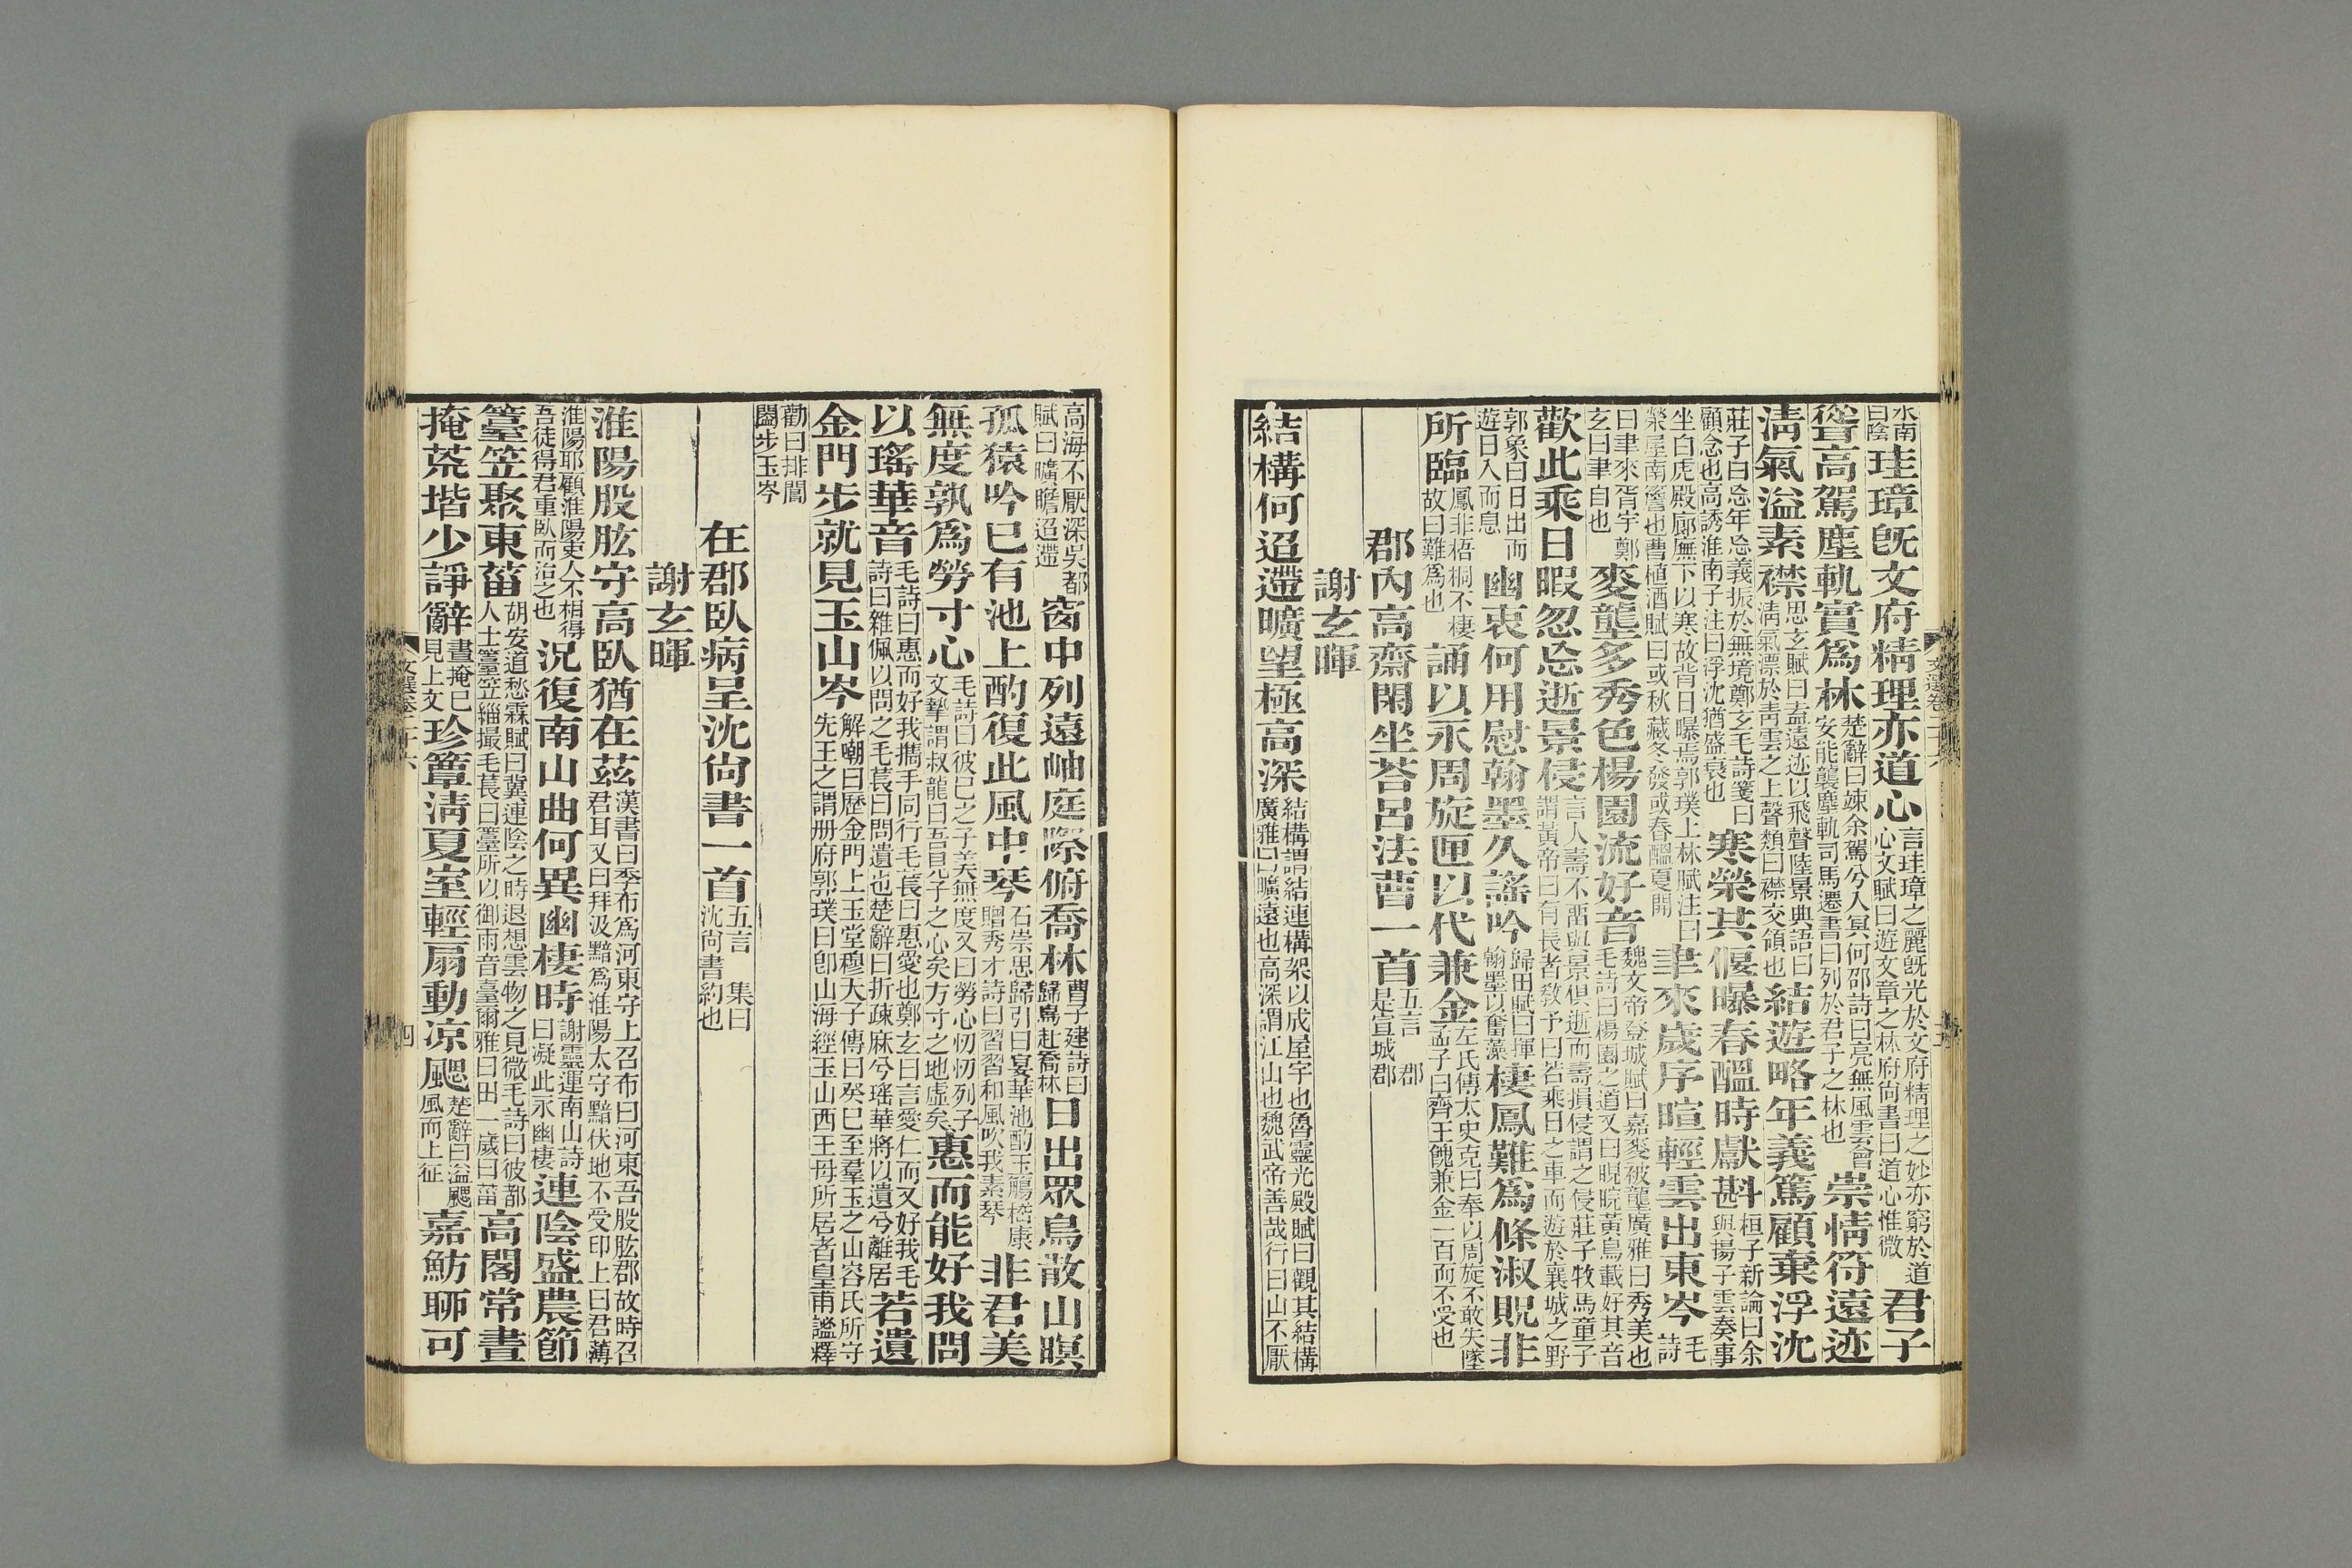 水南曰陰珪璋旣文府精理亦道心言珪璋之麗旣光於文府精理之妙亦窮於道心文賦曰遊文章之林府尚書曰道心惟微君子
聳高駕塵軌實爲林楚辭曰竦余駕兮入冥何邵詩曰亮無風雲會安能襲塵軌司馬遷書曰列於君子之林也崇情符遠迹
淸氣溢素襟思玄賦曰盍遠迹以飛聲陸景典語曰淸氣漂於靑雲之上聲類曰襟交領也結遊略年義篤顧棄浮沈
莊子曰忘年忘義振於無境鄭玄毛詩箋曰顧念也高誘淮南子注曰浮沈猶盛衰也寒榮共偃曝春醞時獻斟桓子新論曰余與揚子雲奏事
坐白虎殿廊廡下以寒故背日曝焉郭璞上林賦注曰榮屋南簷也曹植酒賦曰或秋藏冬發或春醞夏開聿來歲序暄輕雲出東岑毛詩
曰聿來胥宇鄭玄曰聿自也麥壟多秀色楊園流好音魏文帝登城賦曰嘉麥被壟廣雅曰秀美也毛詩曰楊園之道又曰睍睆黃鳥載好其音
歡此乘日暇忽忘逝景侵言人壽不畱與景俱逝而壽損侵謂之侵莊子牧馬童子謂黃帝曰有長者敎予曰若乘日之車而遊於襄城之野
郭象曰日出而遊日入而息幽衷何用慰翰墨久謠吟歸田賦曰揮翰墨以奮藻棲鳳難爲條淑貺非
所臨鳳非梧桐不棲故曰難爲也誦以永周旋匣以代兼金左氏傳太史克曰奉以周旋不敢失墜孟子曰齊王餽兼金一百而不受也
郡內高齋閑坐荅呂法曹一首五言 郡是宣城郡
謝玄暉
結構何迢遰曠望極高深結構謂結連構架以成屋宇也魯靈光殿賦曰觀其結構廣雅曰曠遠也高深謂江山也魏武帝善哉行曰山不厭
文選卷二十六
高海不厭深吳都賦曰曠瞻迢遰窗中列遠岫庭際俯喬林曹子建詩曰歸鳥赴喬林日出眾鳥散山暝
孤猿吟已有池上酌復此風中琴石崇思歸引曰宴華池酌玉觴嵇康贈秀才詩曰習習和風吹我素琴非君美
無度孰爲勞寸心毛詩曰彼己之子美無度又曰勞心忉忉列子文摯謂叔龍曰吾見子之心矣方寸之地虛矣惠而能好我問
以瑤華音毛詩曰惠而好我攜手同行毛萇曰惠愛也鄭玄曰言愛仁而又好我毛詩曰雜佩以問之毛萇曰問遺也楚辭曰折疎麻兮瑤華將以遺兮離居若遺
金門步就見玉山岑解嘲曰歷金門上玉堂穆天子傳曰癸巳至羣玉之山容氏所守先王之謂册府郭璞曰卽山海經玉山西王母所居者皇甫謐釋
勸曰排閶闔步玉岑
在郡臥病呈沈尚書一首五言 集曰沈尚書約也
謝玄暉
淮陽股肱守高臥猶在茲漢書曰季布爲河東守上召布曰河東吾股肱郡故時召君耳又曰拜汲黯爲淮陽太守黯伏地不受印上曰君薄
淮陽耶顧淮陽吏人不相得吾徒得君重臥而治之也況復南山曲何異幽棲時謝靈運南山詩曰凝此永幽棲連陰盛農節
籉笠聚東菑胡安道愁霖賦曰冀連陰之時退想雲物之見微毛詩曰彼都人士籉笠緇撮毛萇曰籉所以御雨音臺爾雅曰田一歲曰菑高閣常晝
掩荒堦少諍辭晝掩已見上文珍簟淸夏室輕扇動涼颸楚辭曰溢颸風而上征嘉魴聊可
文選卷二十六
四